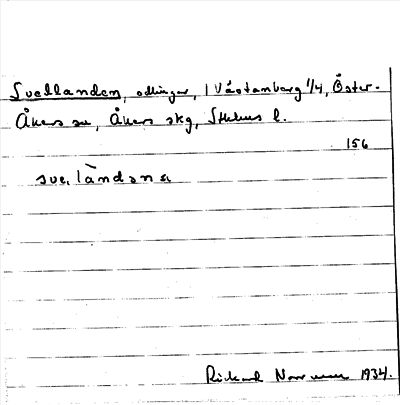 Svellanden, odlingar, 1 Västanberg 1/4, Öster-
Åkers sn, Åkers skg, Sthlms l.
156
sve, làndəna
Rickard 1934.